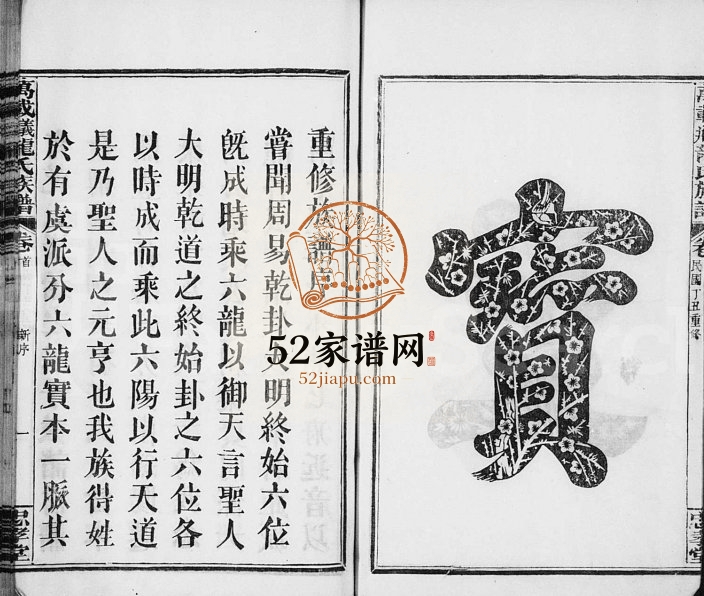 民國丁丑重修
忠孝堂
寶
重修族譜序
嘗聞周易乾卦大明終始六位
旣成時乘六龍以御天言聖人
大明乾道之終始卦之六位各
以時成而乘此六陽以行天道
是乃聖人之元亨也我族得姓
於有虞派分六龍實本一脈其
龍氏族譜
卷首
新序
一
忠孝堂
52家谱网
52jiapu.com